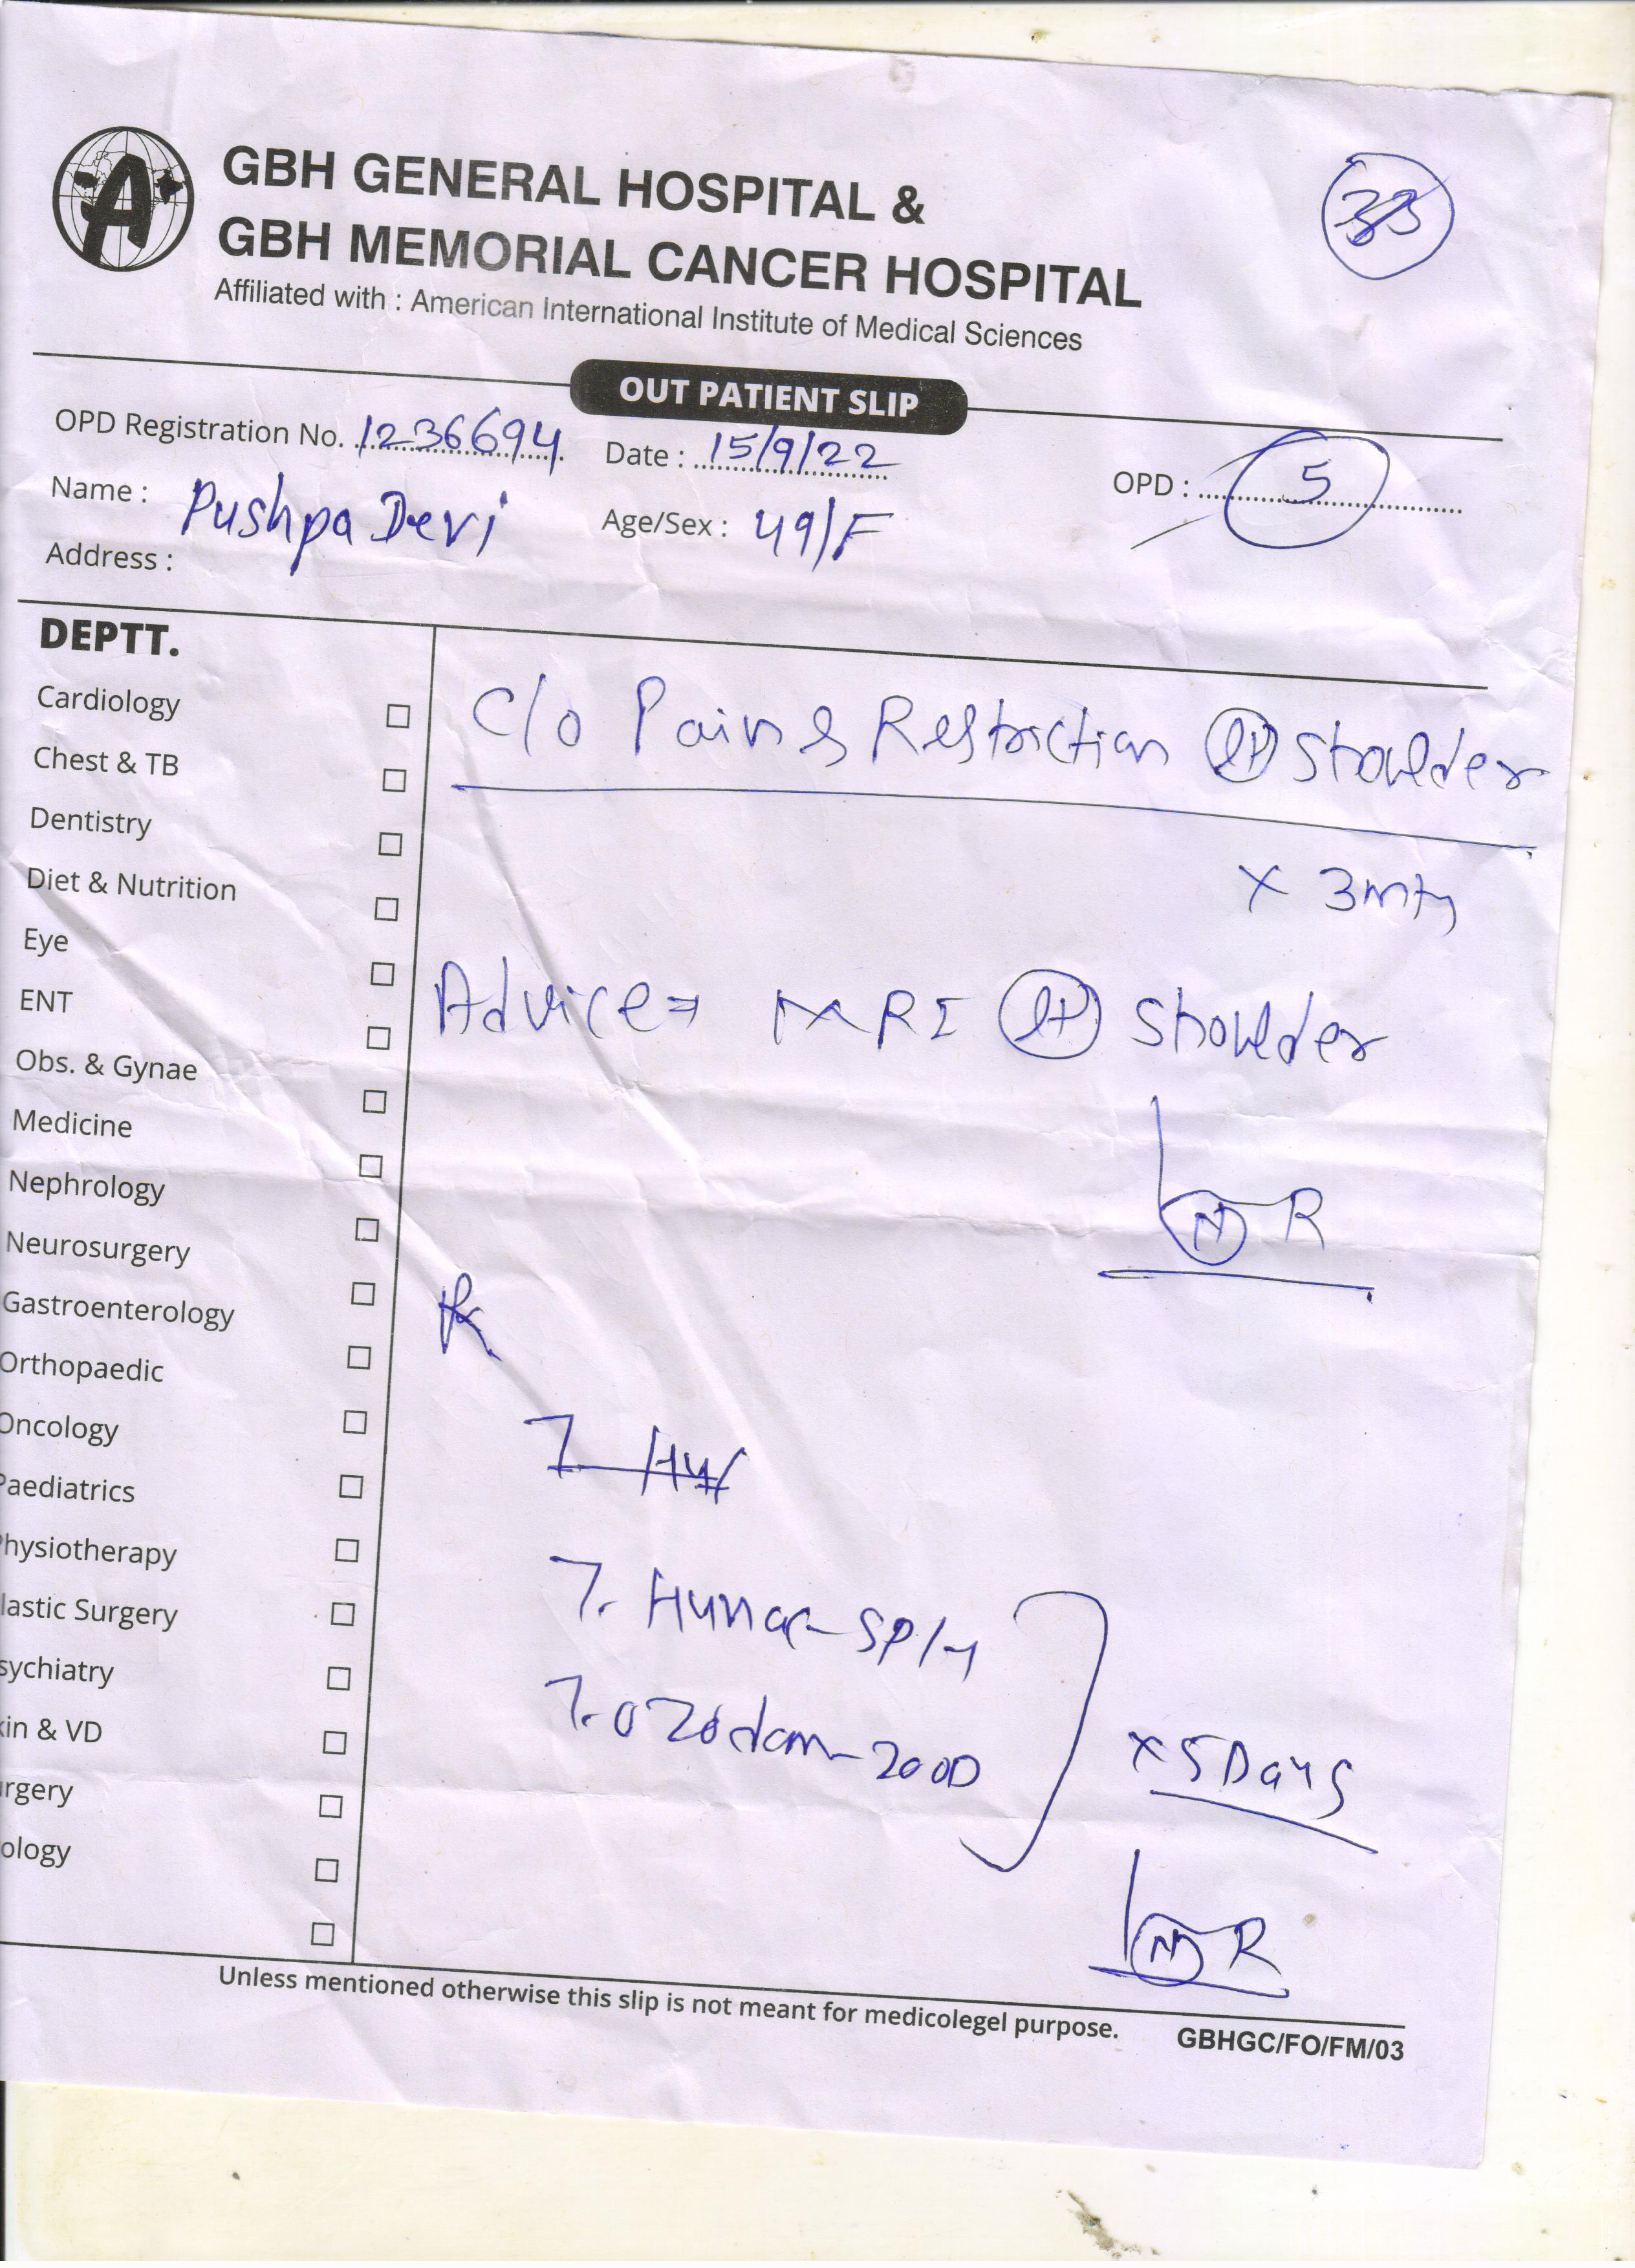 GBH GENERAL HOSPITAL &
GBH MEMORIAL CANCER HOSPITAL
Affiliated with : American International Institute of Medical Sciences
OUT PATIENT SLIP
OPD Registration No. 1236694 Date : 15/9/22 OPD : 5
Name : Pushpa Devi Age/Sex : 49/F
Address :
DEPTT.
Cardiology
Chest & TB
Dentistry
Diet & Nutrition
Eye
ENT
Obs. & Gynae
Medicine
Nephrology
Neurosurgery
Gastroenterology
Orthopaedic
Oncology
Paediatrics
Physiotherapy
lastic Surgery
sychiatry
in & VD
rgery
ology
C/o Pain & Restriction Lt Shoulder
x 3mth
Advice MRI Lt Shoulder
R
Rx
T.
T. SP
T. 200
x 5 Days
R
Unless mentioned otherwise this slip is not meant for medicolegel purpose.
GBHGC/FO/FM/03